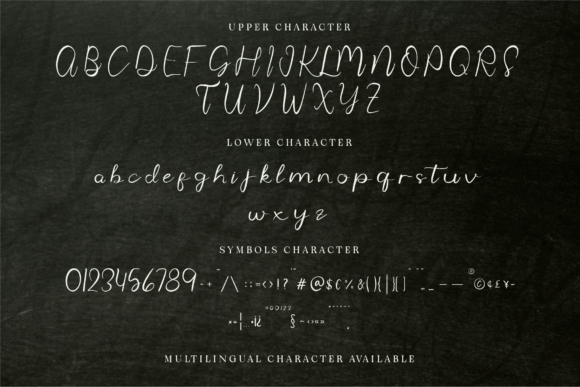 UPPER CHARACTER
ABCDEFGHIJKLMNOPQRS
TUVWXYZ
LOWER CHARACTER
abcdefghijklmnopqrstuv
wxyz
SYMBOLS CHARACTER
0123456789 - + /\ : ; = < > ! ? # @ $ € % & ( ) { } | [ ] _ — — ® © ¢ £ ¥
§
MULTILINGUAL CHARACTER AVAILABLE